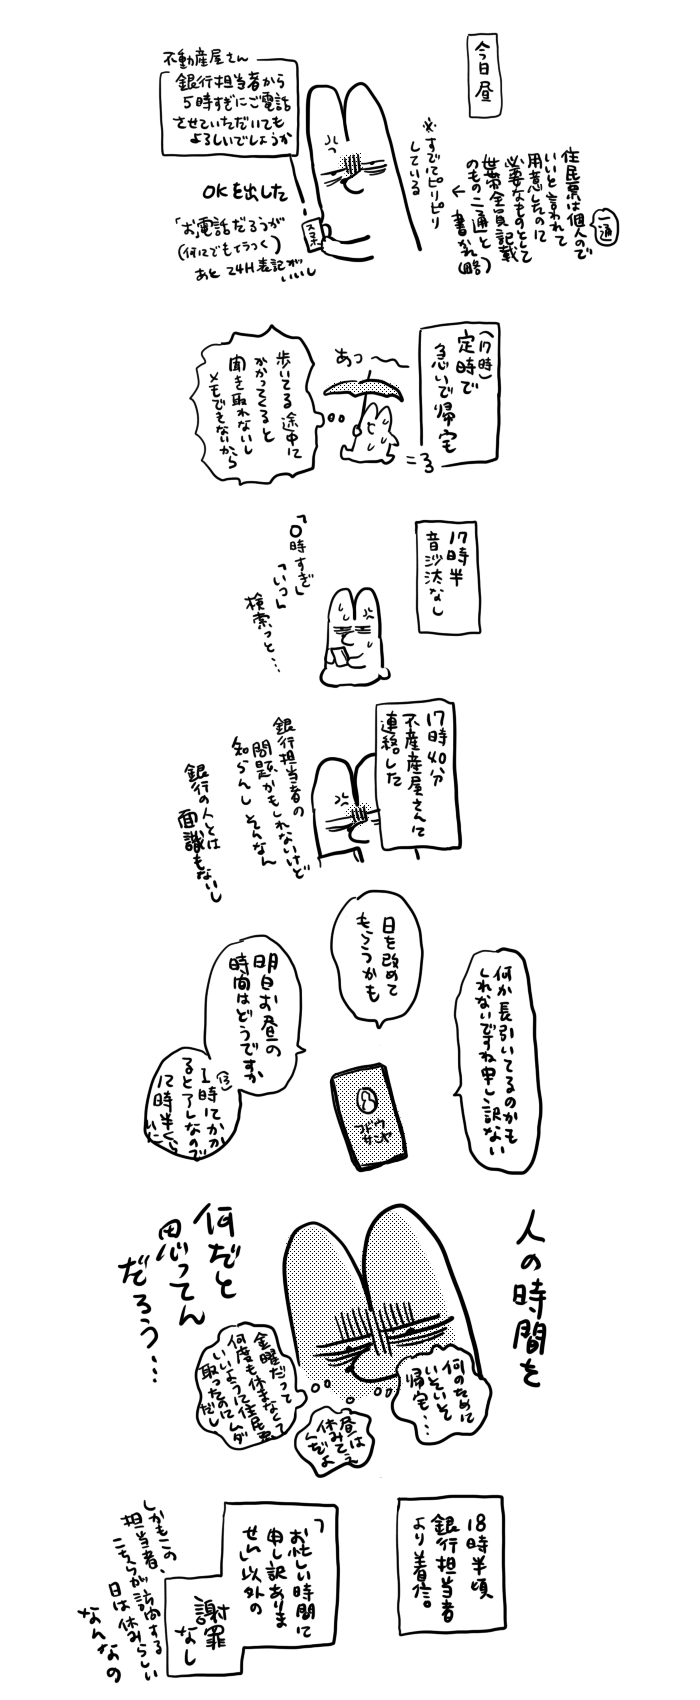 今日昼
住民票は個人ので
いいと言われて
用意したのに
必要なものとして
世帯全員記載
のもの二通と
書かれ(略)
一通
※すでにピリピリ
している
不動産屋さん
銀行担当者から
5時すぎにご電話
させていただいても
よろしいでしょうか
OKを出した
スマホ
「お電話だろうが
(何にでもイラつく)
あと24H表記がいいし
(17時)
定時で
急いで帰宅
あっ
歩いてる途中に
かかってくると
聞き取れないし
メモできないから
17時半
音沙汰なし
「○時すぎ」
「いつ」
検索っと…
17時40分
不産産屋さんに
連絡した
銀行担当者の
問題かもしれないけど
知らんしそんなん
銀行の人とは
面識もないし
何か長引いてるのかも
しれないですね申し訳ない
日を改めて
もらうかも
明日お昼の
時間はどうですか
(13)
1時にかか
るとアレなので
12時半くらいに
フドウ
サンヤ
人の時間を
何だと
思ってん
だろう…
何のために
いそいで
帰宅…
昼は
休みてえ
んだよ
金曜だって
何度も休まなくて
いいように住民票
取ったのにムダ
だし
18時半頃
銀行担当者
より着信。
「お忙しい時間に
申し訳ありま
せん」以外の
謝罪
なし
しかもこの
担当者、
こちらが訪問する
日は休みらしい
なんなの